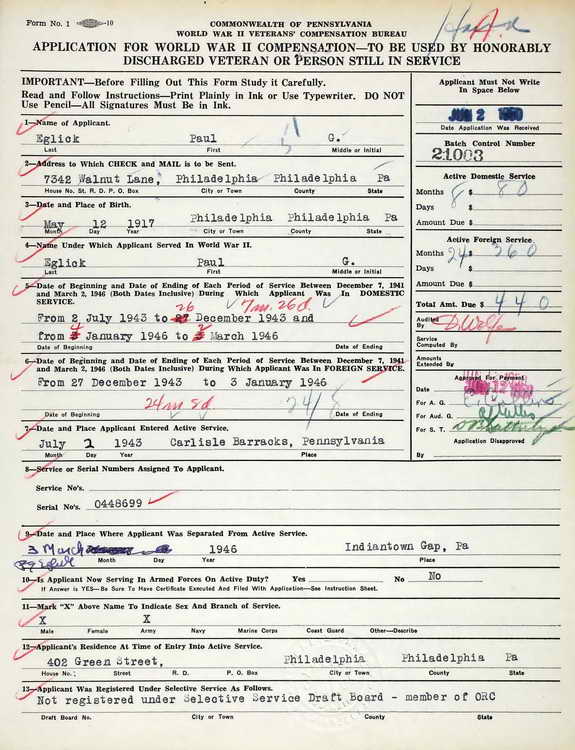 Form No. 1 -10
COMMONWEALTH OF PENNSYLVANIA
WORLD WAR II VETERANS' COMPENSATION BUREAU
APPLICATION FOR WORLD WAR II COMPENSATION—TO BE USED BY HONORABLY
DISCHARGED VETERAN OR PERSON STILL IN SERVICE
IMPORTANT—Before Filling Out This Form Study it Carefully.
Read and Follow Instructions—Print Plainly in Ink or Use Typewriter. DO NOT
Use Pencil—All Signatures Must Be in Ink.
1—Name of Applicant.
Eglick Paul G.
Last First Middle or Initial
2—Address to Which CHECK and MAIL is to be Sent.
7342 Walnut Lane, Philadelphia Philadelphia Pa
House No. St. R. D. P. O. Box City or Town County State
3—Date and Place of Birth.
May 12 1917 Philadelphia Philadelphia Pa
Month Day Year City or Town County State
4—Name Under Which Applicant Served In World War II.
Eglick Paul G.
Last First Middle or Initial
5—Date of Beginning and Date of Ending of Each Period of Service Between December 7, 1941
and March 2, 1946 (Both Dates Inclusive) During Which Applicant Was In DOMESTIC
SERVICE.
7m. 26d.
26
From 2 July 1943 to 27 December 1943 and
4 2
from 3 January 1946 to 3 March 1946
Date of Beginning Date of Ending
6—Date of Beginning and Date of Ending of Each Period of Service Between December 7, 1941
and March 2, 1946 (Both Dates Inclusive) During Which Applicant Was In FOREIGN SERVICE.
From 27 December 1943 to 3 January 1946
24m 8d. 24/8
Date of Beginning Date of Ending
7—Date and Place Applicant Entered Active Service.
July 2 1943 Carlisle Barracks, Pennsylvania
Month Day Year Place
8—Service or Serial Numbers Assigned To Applicant.
Service No's.
Serial No's. 0448699
9—Date and Place Where Applicant Was Separated From Active Service.
3 March 1946 Indiantown Gap, Pa
Month Day Year Place
10—Is Applicant Now Serving In Armed Forces On Active Duty? Yes No No
If Answer is YES—Be Sure To Have Certificate Executed And Filed With Application—See Instruction Sheet.
11—Mark "X" Above Name To Indicate Sex And Branch of Service.
X X
Male Female Army Navy Marine Corps Coast Guard Other—Describe
12—Applicant's Residence At Time of Entry Into Active Service.
402 Green Street, Philadelphia Philadelphia Pa
House No. Street R. D. P. O. Box City or Town County State
13—Applicant Was Registered Under Selective Service As Follows.
Not registered under Selective Service Draft Board - member of ORC
Draft Board No. City or Town County State
Applicant Must Not Write
In Space Below
JUN 2 1950
Date Application Was Received
Batch Control Number
21003
Active Domestic Service
Months 8 $ 80
Days
Amount Due $
Active Foreign Service
Months 24 $ 360
Days $
Amount Due $
Total Amt. Due $ 440
Audited
By
Service
Computed By
Amounts
Extended By
Approved For Payment
Date
For A. G.
For Aud. G.
For S. T.
Application Disapproved
By